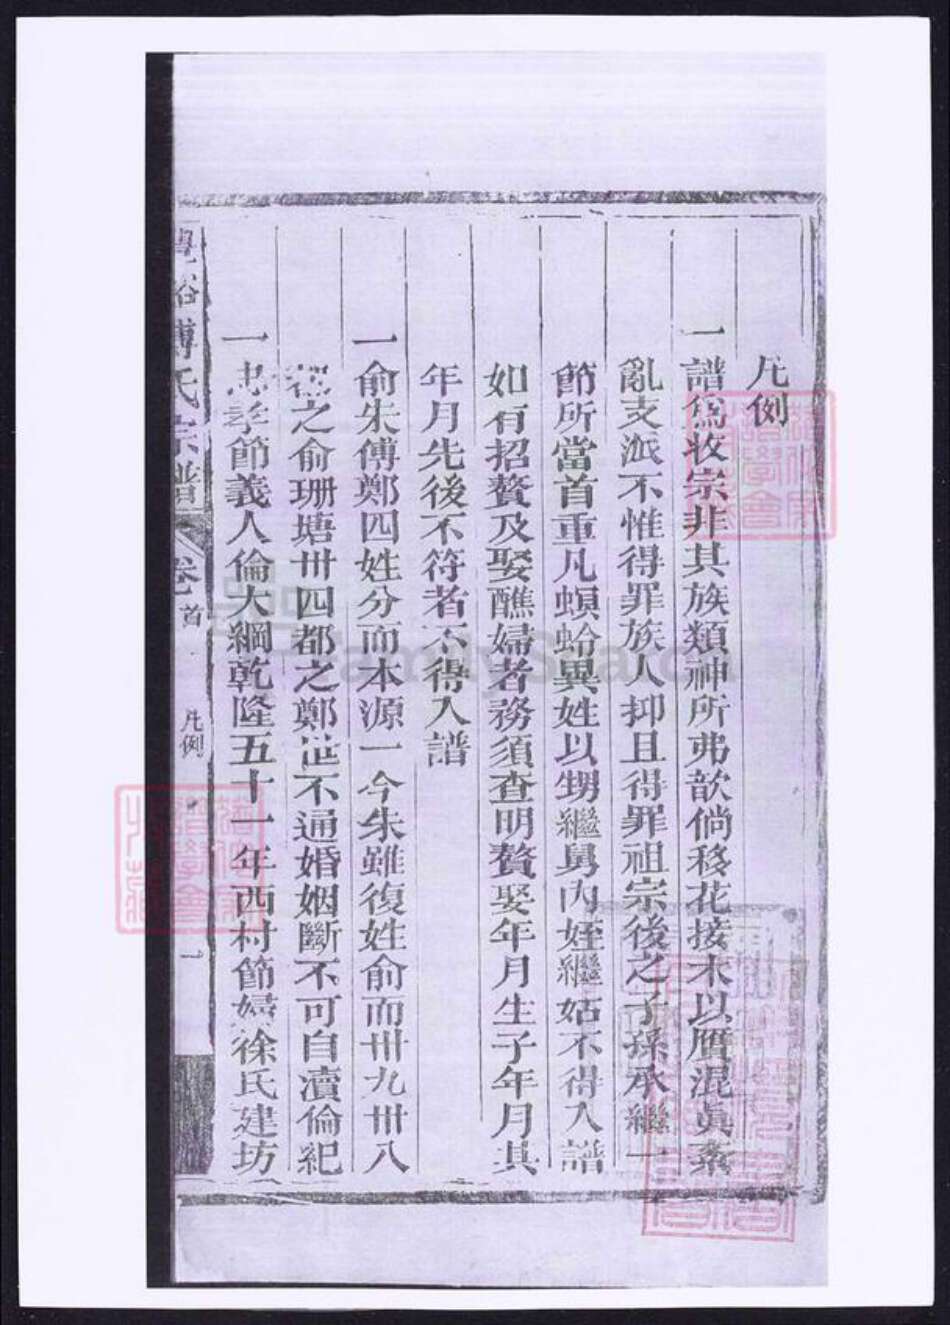 凡例
一譜爲收宗非其族類神所弗歆倘移花接木以贋混眞紊
亂支派不惟得罪族人抑且得罪祖宗後之子孫承繼一
節所當首重凡螟蛉異姓以甥繼舅內姪繼姑不得入譜
如有招贅及娶醮婦者務須查明贅娶年月生子年月其
年月先後不符者不得入譜
一俞朱傅鄭四姓分而本源一今朱雖復姓俞而卅九卅八
都之俞珊塘卅四都之鄭從不通婚姻斷不可自瀆倫紀
一忠孝節義人倫大綱乾隆五十一年西村節婦徐氏建坊
傅氏宗譜 卷首 凡例 一
FamilySearch